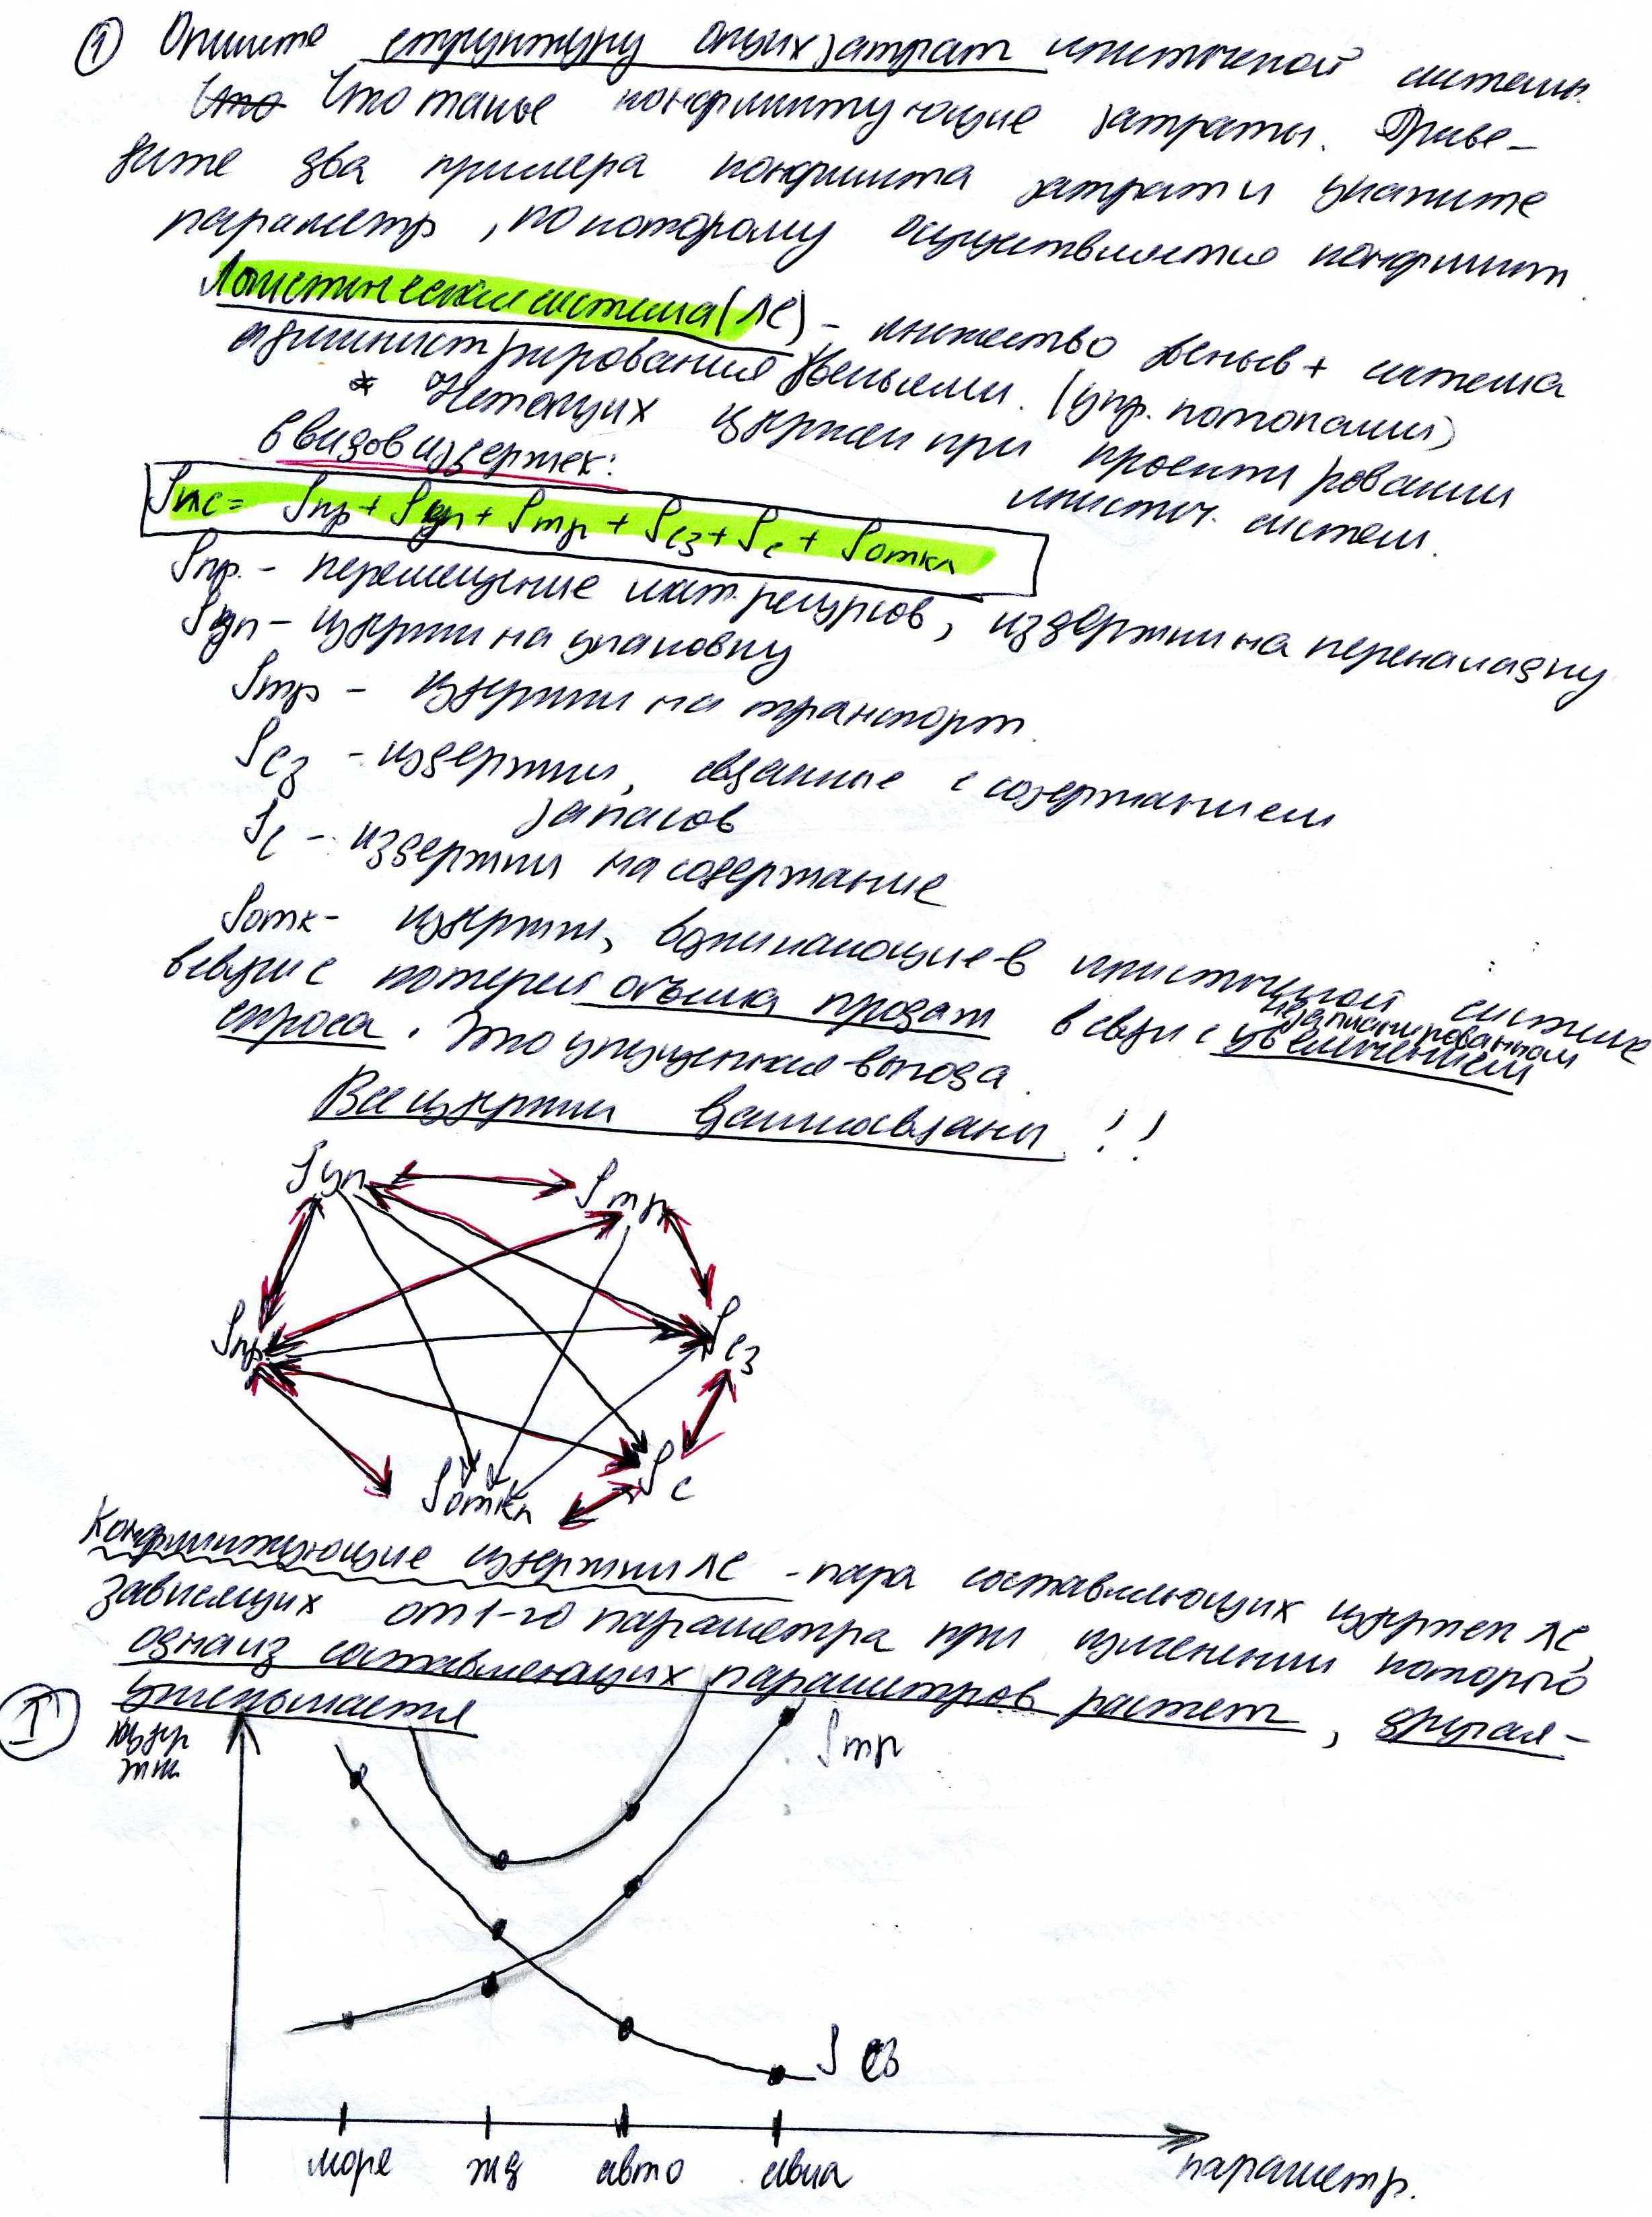 ① Опишите структуру общих затрат логистической системы.
Что такое конфликтующие затраты. Приве-
дите два примера конфликта затрат и укажите
параметр, по которому осуществляется конфликт.
Логистическая система (ЛС) – множество звеньев + система
администрирования звеньями. (упр. потоками)
* Нет общих издержек при проектировании
логистич. систем.
6 видов издержек:
Sлс = Sпр + Sуп + Sтр + Sсз + Sс + Sоткл
Sпр. – перемещение мат. ресурсов, издержки на переналадку
Sуп – издержки на упаковку
Sтр – издержки на транспорт.
Sсз – издержки, связанные с содержанием
запасов
Sс – издержки на содержание
Sотк – издержки, возникающие в логистической системе
в связи с потерей объёма продаж в связи с увеличением
незапланированным
спроса. Это упущенная выгода.
Все издержки взаимосвязаны !!
Sуп Sтр
Sпр Sсз
Sоткл Sс
Конфликтующие издержки ЛС – пара составляющих издержек ЛС,
зависящих от 1-го параметра при изменении которого
одна из составляющих параметров растет, другая –
уменьшается
I
издер
жки
Sтр
море жд авто авиа
параметр.